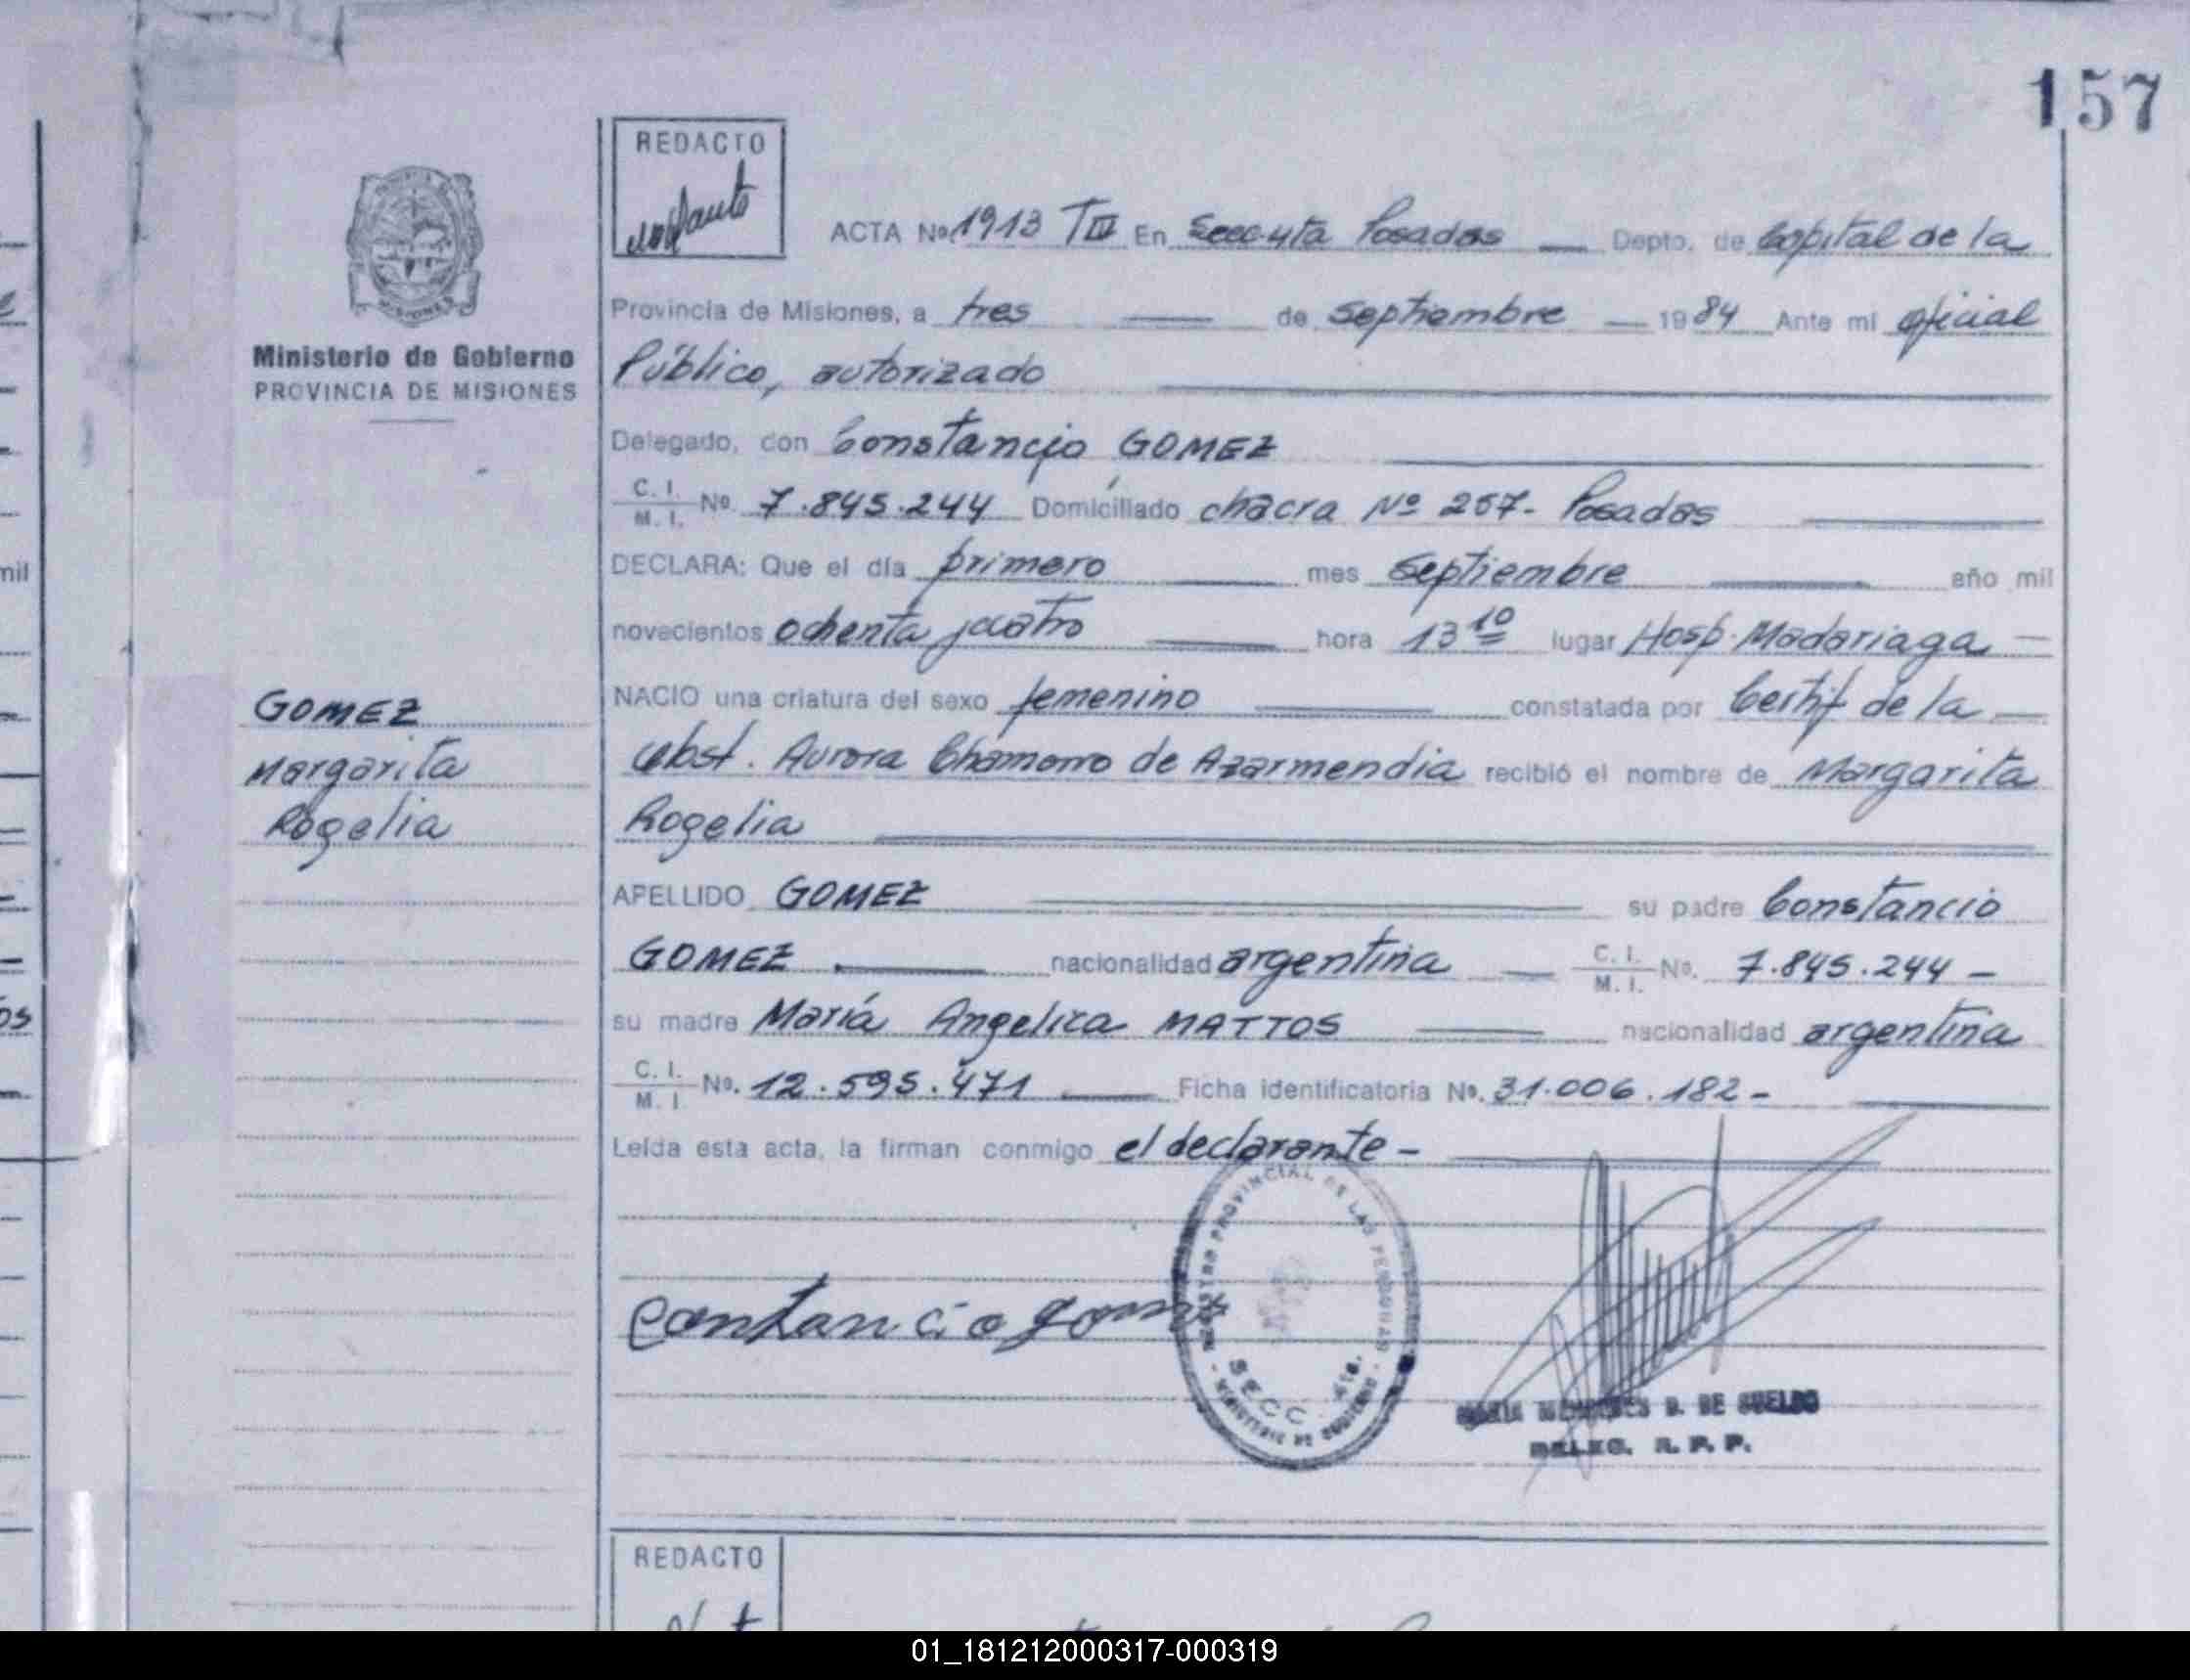 157
REDACTO
ACTA No. 1913 TIII En Secc 4ta Posadas — Depto. de Capital de la
Provincia de Misiones, a tres — de septiembre — 1984 Ante mi oficial
Público, autorizado
Ministerio de Gobierno
PROVINCIA DE MISIONES
Delegado, con Constancio GOMEZ
C. I. / M. I. No. 7.845.244 Domiciliado chacra Nº 257 - Posadas
DECLARA: Que el día primero — mes septiembre — año mil
novecientos ochenta y cuatro — hora 13 10 lugar Hosp. Madariaga —
NACIO una criatura del sexo femenino — constatada por Certif de la —
obst. Aurora Chamorro de Azarmendia recibió el nombre de Margarita
Rogelia
GOMEZ
Margarita
Rogelia
APELLIDO GOMEZ — su padre Constancio
GOMEZ — nacionalidad argentina — C. I. / M. I. No. 7.845.244 —
su madre María Angelica MATTOS — nacionalidad argentina
C. I. / M. I. No. 12.595.471 — Ficha identificatoria No. 31.006.182 -
Leída esta acta, la firman conmigo el declarante -
REGISTRO PROVINCIAL DE LAS PERSONAS
SECC. 4ta.
MINISTERIO DE GOBIERNO
MARIA B. DE SUELDO
DELEG. R. P. P.
REDACTO
mil
os
01_181212000317-000319